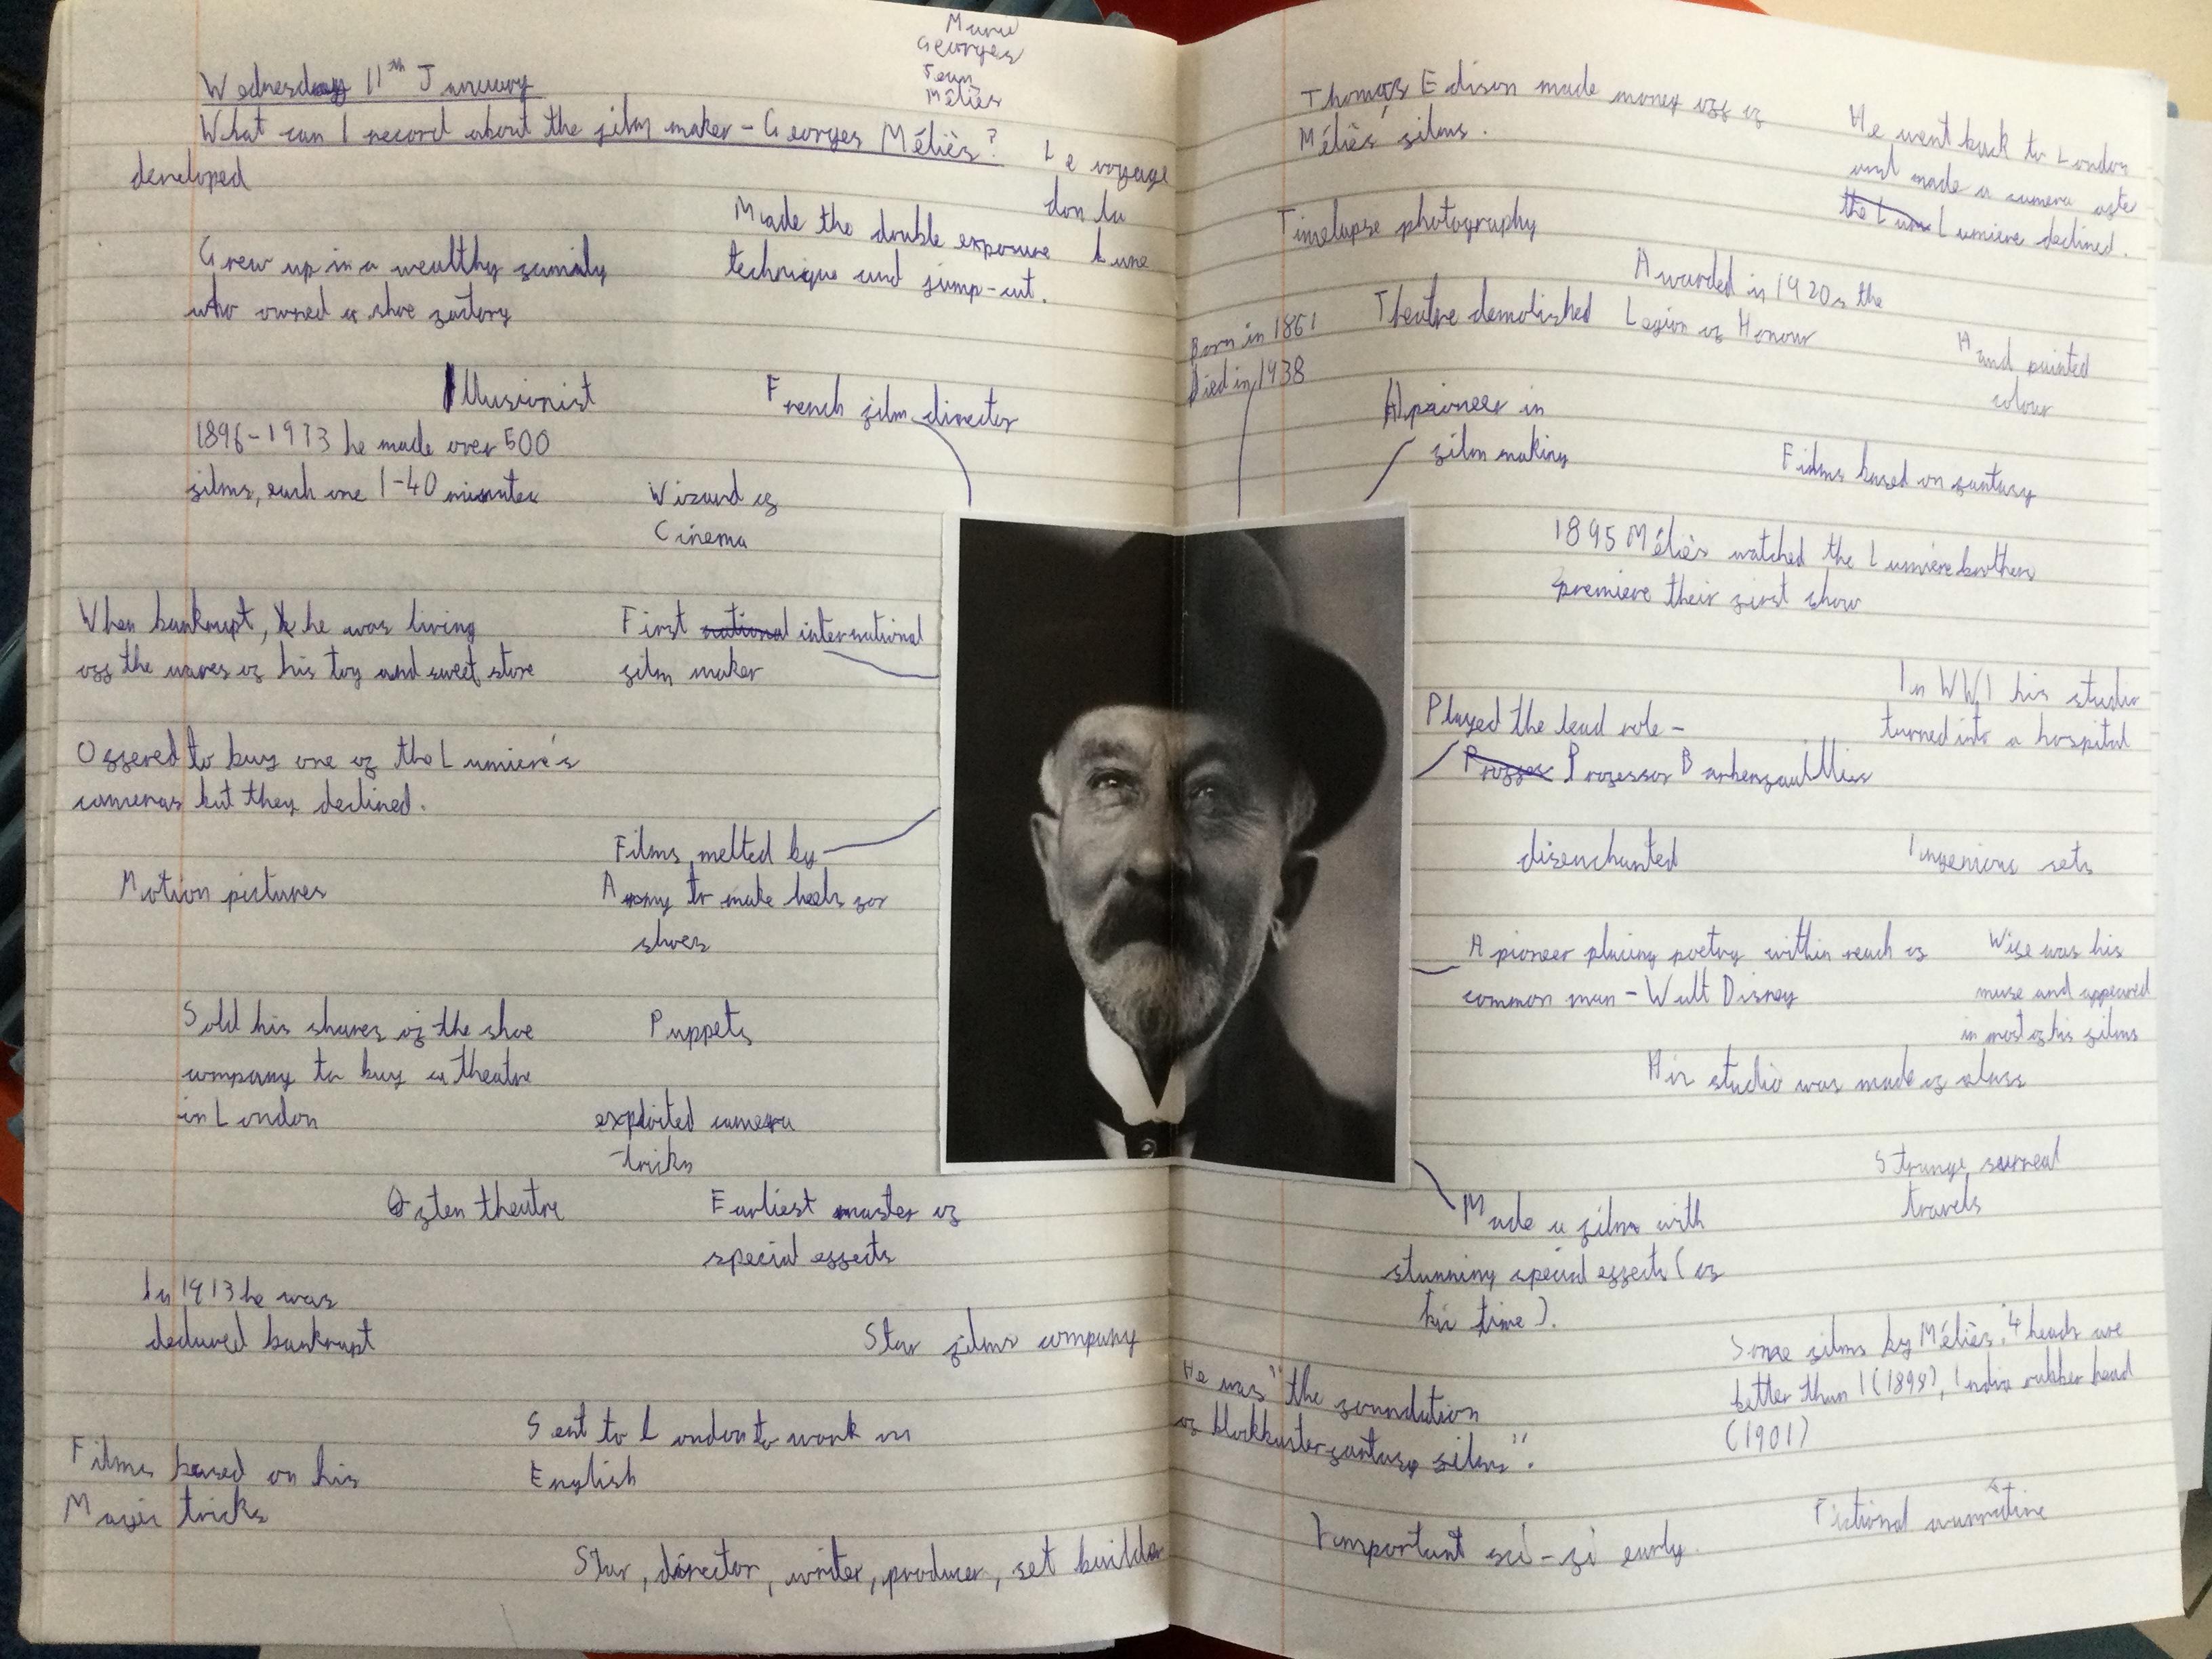 Marie
Georges
Jean
Méliès
Wednesday 11th January
What can I record about the film maker - Georges Méliès?
developed
Le voyage
dan la
Lune
Made the double exposure
technique and jump-cut.
Grew up in a wealthy family
who owned a shoe factory
Illusionist
French film director
1896-1973 he made over 500
films, each one 1-40 minutes
Wizard of
Cinema
When bankrupt, he was living
off the wares of his toy and sweet store
First national international
film maker
Offered to buy one of the Lumiere's
cameras but they declined.
Films melted by
Army to make heels for
shoes
Motion pictures
Sold his shares of the shoe
company to buy a theatre
in London
Puppets
exploited camera
tricks
Often theatre
Earliest master of
special effects
In 1913 he was
declared bankrupt
Star films company
Sent to London to work on
English
Films based on his
Magic tricks
Star, director, writer, producer, set builder
Thomas Edison made money off of
Méliès' films.
He went back to London
and made a camera after
the Lum Lumiere declined.
Timelapse photography
Awarded in 1920s the
Legion of Honour
Theatre demolished
Born in 1861
Died in 1938
Hand painted
colour
A pioneer in
film making
Films based on fantasy
1895 Méliès watched the Lumiere brothers
premiere their first show
In WW1 his studio
turned into a hospital
Played the lead role -
Proffes Professor Barbenfouillies
disenchanted
Ingenious sets
A pioneer placing poetry within reach of
common man - Walt Disney
Wife was his
muse and appeared
in most of his films
His studio was made of glass
Strange, surreal
travels
Made a film with
stunning special effects (of
his time).
Some films by Méliès: 4 heads are
better than 1 (1898), India rubber head
(1901)
He was "the foundation
of blockbuster fantasy films".
Fictional narrative
Important sci-fi early.